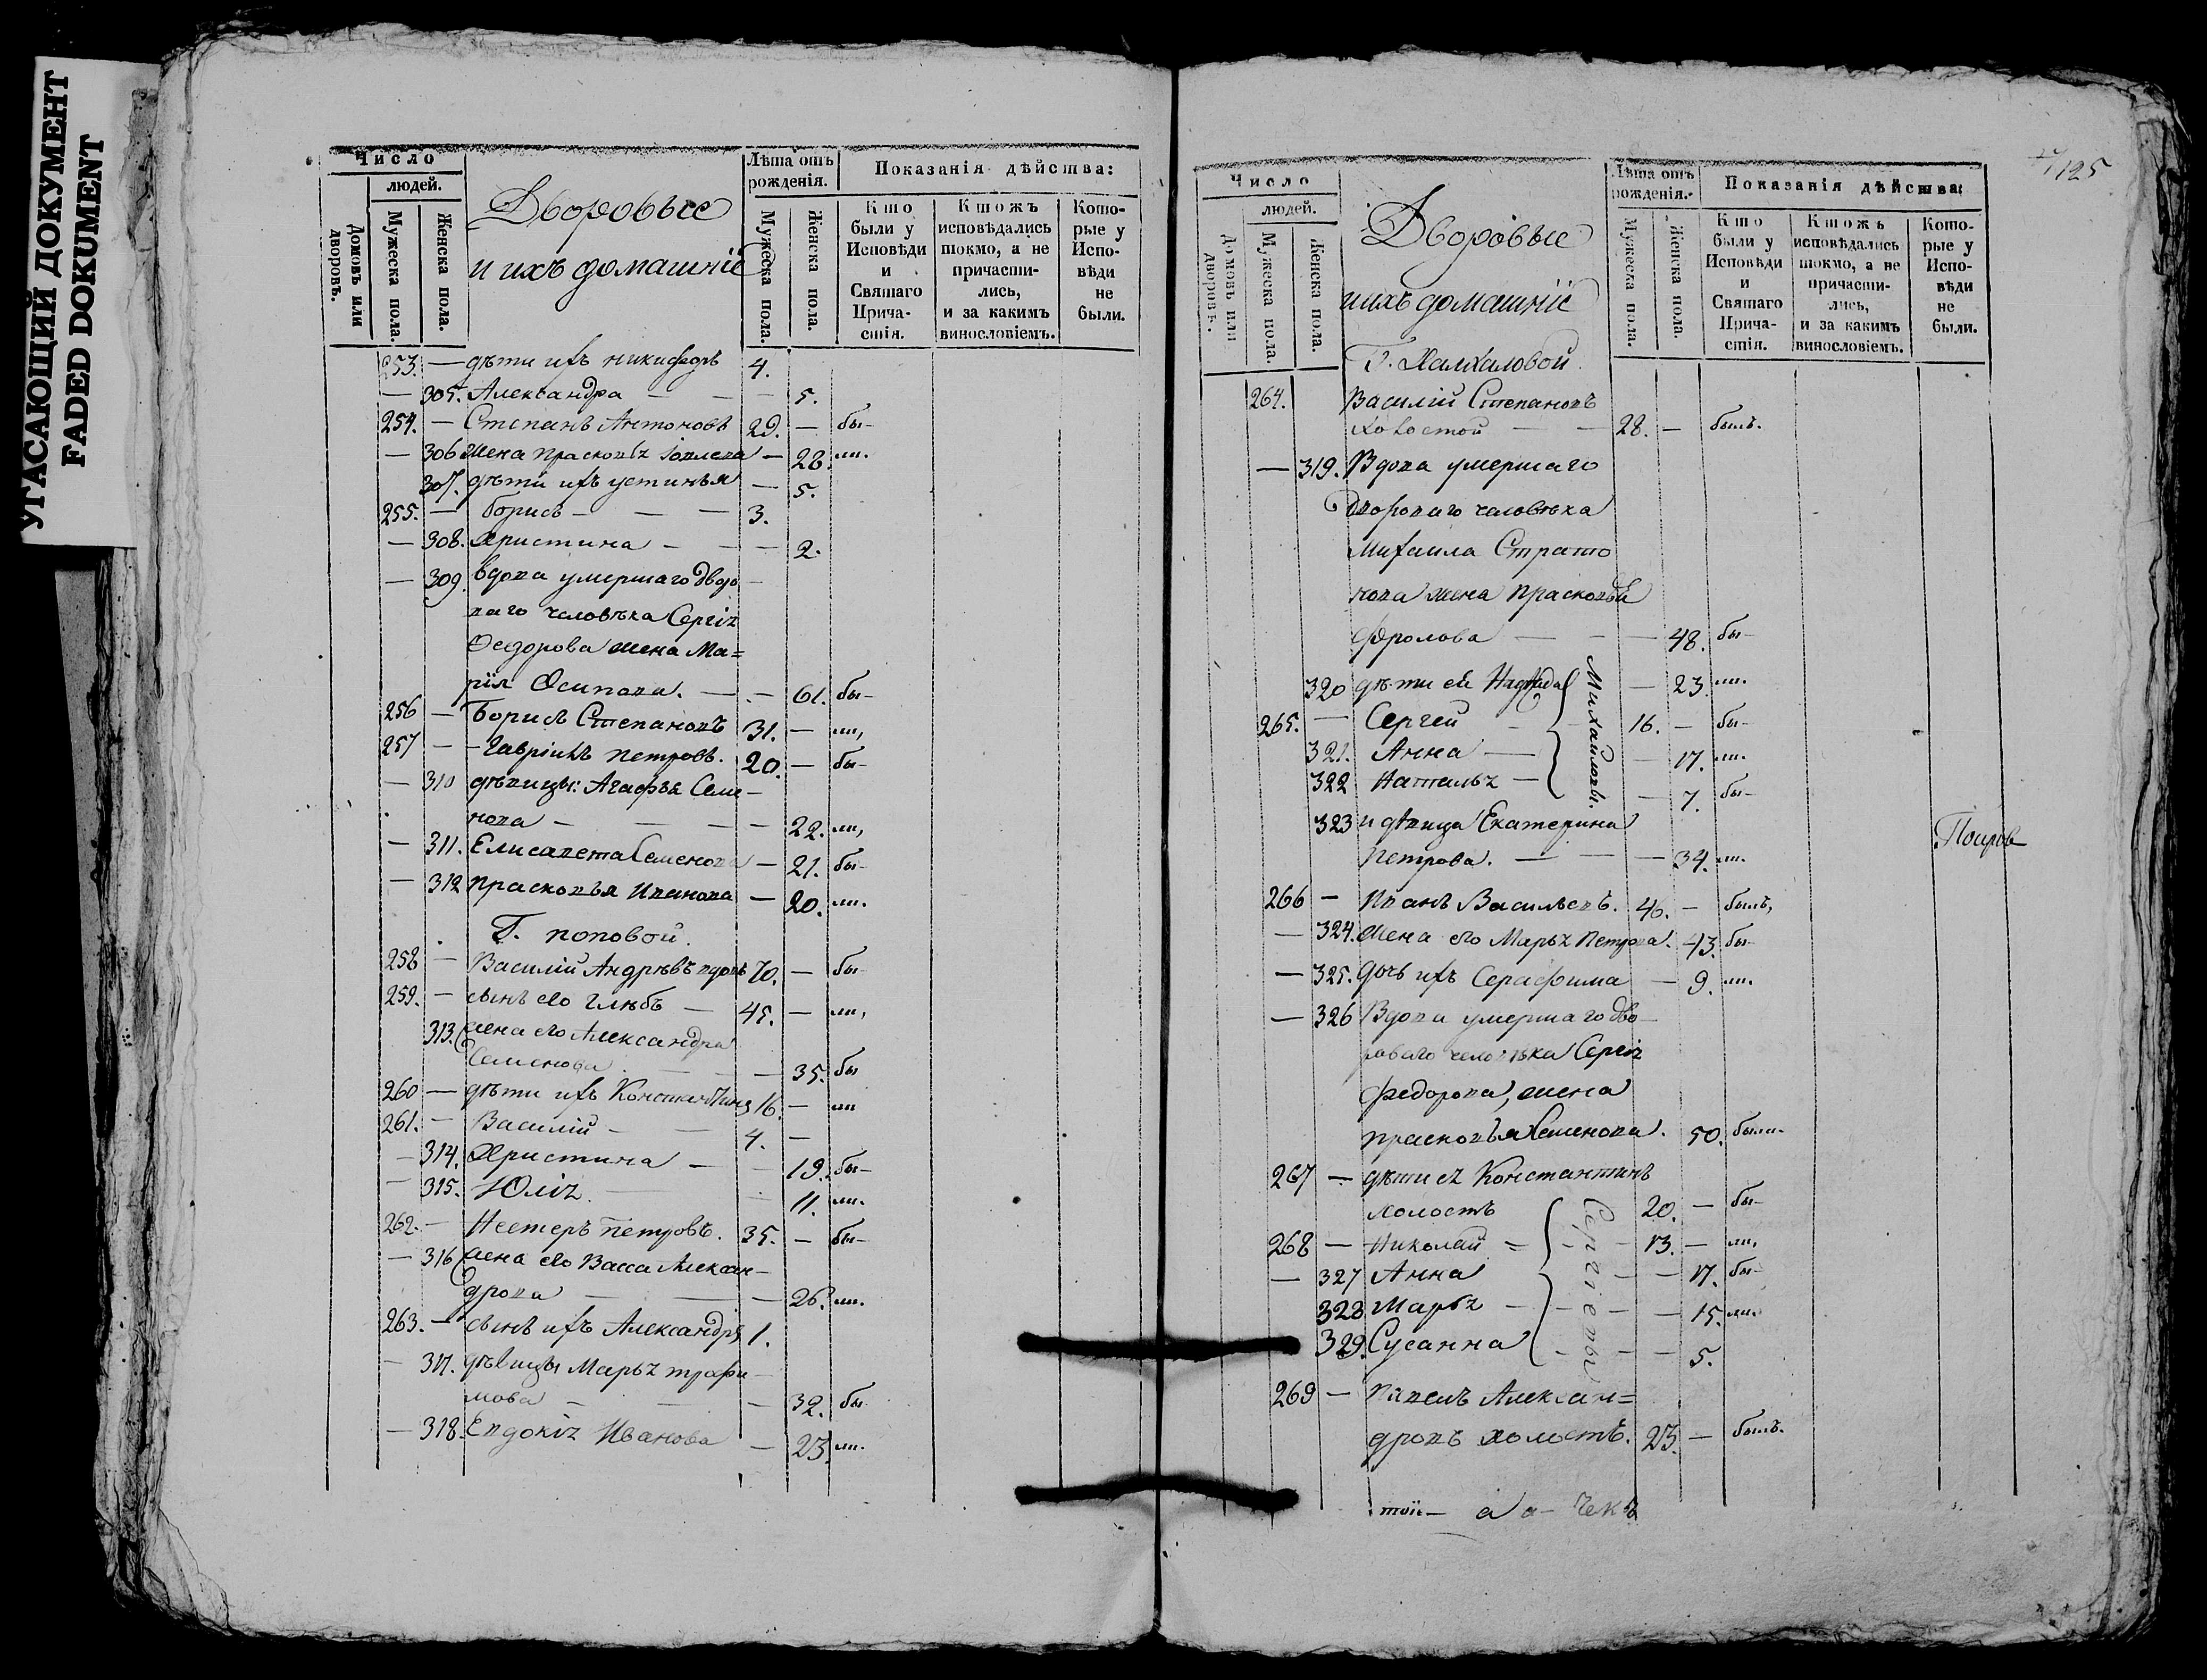 УГАСАЮЩИЙ ДОКУМЕНТ
FADED DOKUMENT
Число
людей.
Домовъ или дворовъ.
Мужеска пола.
Женска пола.
Дворовые
и ихъ домашніе
Лѣта отъ рожденія.
Мужеска пола.
Женска пола.
Показанія дѣйства:
Кто были у Исповѣди и Святаго Прича-стія.
Ктожъ исповѣдались токмо, а не причасти-лись, и за какимъ винословіемъ.
Кото-рые у Испо-вѣди не были.
253. — дѣти ихъ никифоръ 4.
— 305. Александра — — 5.
254. — Степанъ Антоновъ 29. — бы-
— 306 жена праскопья — 28. ли.
307. дѣти ихъ устинья — 5.
255. — борисъ — — 3.
— 308. Христина — — 2.
— 309. вдова умершаго дворо
ваго человѣка Сергія
Феодорова жена Ма=
рія Осипова. — — 61. бы-
256 — Борисъ Степановъ 31. — ли,
257 — Гавріилъ петровъ. 20. — бы-
— 310 дѣвицы: Агафья Семе-
нова — — — 22. ли,
— 311. Елисавета Семенова — 21. бы-
— 312 праскопья Иванова — 20. ли.
Г. поповой.
258 — Василій Андрѣевъ вдовъ 70. — бы-
259. — сынъ его Глѣбъ — 45. — ли,
313. жена его Александра
Семенова — — 35. бы
260 — дѣти ихъ Константинъ 16. — ли
261. — Василій — — 4. —
— 314. Христина — — 19. бы-
— 315. Юлія — 11. ли.
262. — Нестеръ петровъ. 35. — бы-
— 316 жена его Васса Алексан-
дрова — — — 26. ли.
263. — сынъ ихъ Александръ 1.
— 317. дѣвицы Марья трофи-
мова — — — 32. бы-
— 318. Евдокія Иванова — 23. ли.
125
Число
людей.
Домовъ или дворовъ.
Мужеска пола.
Женска пола.
Дворовые
и ихъ домашніе
Лѣта отъ рожденія.
Мужеска пола.
Женска пола.
Показанія дѣйства:
Кто были у Исповѣди и Святаго Прича-стія.
Ктожъ исповѣдались токмо, а не причасти-лись, и за какимъ винословіемъ.
Кото-рые у Испо-вѣди не были.
264. Василій Степановъ
холостой — — 28. — былъ.
— 319. Вдова умершаго
двороваго человѣка
Михаила Страто
нова жена праскопья
фролова — — — 48. бы-
320 дѣти ея — 23. ли.
265. — Сергей — 16. — бы-
321. Анна — — 17. ли.
322 Наталья — — 7. бы-
Михайловы.
323 и дѣвица Екатерина
петрова. — — — 34. ли.
266 — Иванъ Васильевъ. 46. — былъ,
— 324. жена его Марья Петрова. 43. бы-
— 325. дочь ихъ Серафима — 9. ли.
— 326 Вдова умершаго дво-
роваго человѣка Сергія
федорова, жена
праскопья Семенова. 50. была.
267 — дѣти ея Константинъ
холостъ 20. — бы-
268 — Николай 13. — ли,
— 327 Анна — — 17. бы-
328 Марья — — 15. ли.
329. Сусанна — — 5.
Сергіевы
269 — Павелъ Алексан=
дровъ холостъ. 23. — былъ.